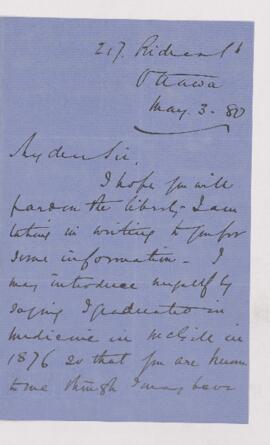 217. Rideau St
Ottawa
May. 3 - 80
My dear Sir,
I hope you will
pardon the liberty I am
taking in writing to you for
some information - I
may introduce myself by
saying I graduated in
medicine in McGill in
1876 so that you are known
to me though I may have